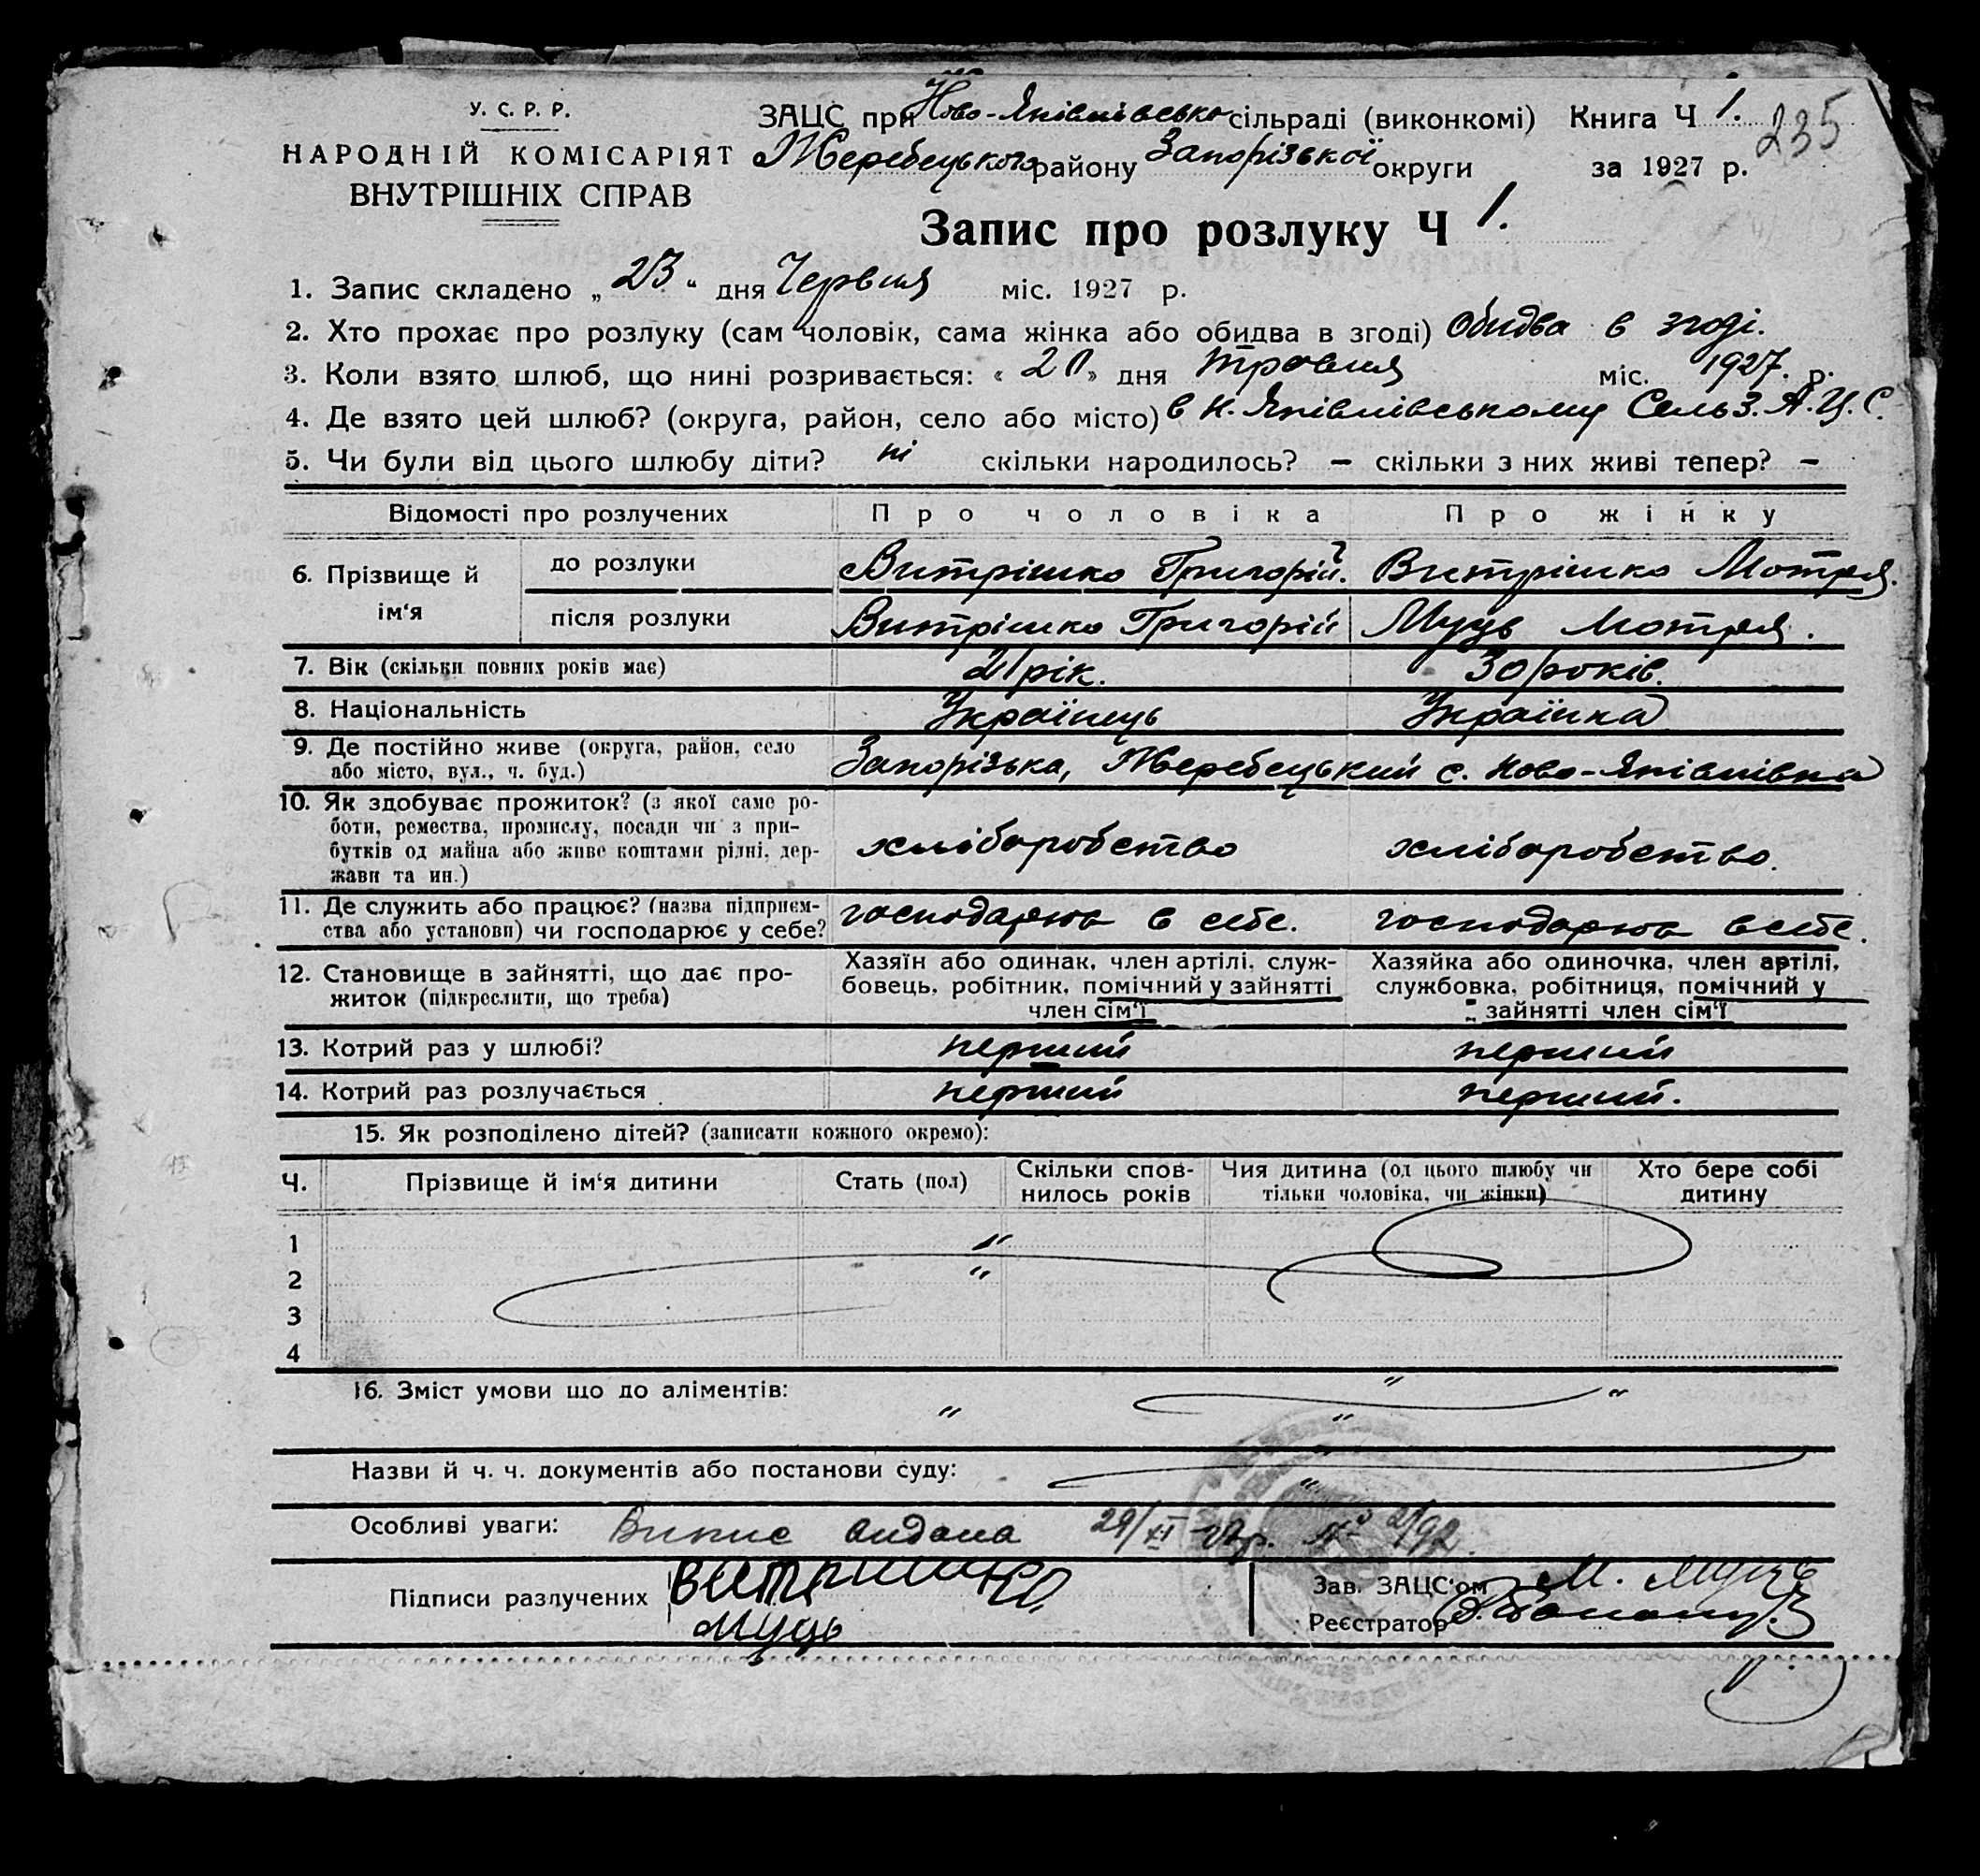 У. С. Р. Р.
НАРОДНІЙ КОМІСАРІЯТ
ВНУТРІШНІХ СПРАВ
ЗАЦС при Ново-Янівлівсько сільраді (виконкомі) Книга Ч 1. 235
Жеребецького району Запорізької округи за 1927 р.
Запис про розлуку Ч 1.
1. Запис складено „ 23 “ дня Червня міс. 1927 р.
2. Хто прохає про розлуку (сам чоловік, сама жінка або обидва в згоді) Обидва в згоді.
3. Коли взято шлюб, що нині розривається: « 20 » дня травня міс. 1927. р.
4. Де взято цей шлюб? (округа, район, село або місто) в Н. Янівлівському Сель З. А. Ц. С.
5. Чи були від цього шлюбу діти? ні скільки народилось? — скільки з них живі тепер? —
Відомості про розлучених Про чоловіка Про жінку
6. Прізвище й ім‘я
до розлуки Витрішко Григорій. Витрішко Мотря.
після розлуки Витрішко Григорій Муць Мотря.
7. Вік (скільки повних років має) 21 рік. 30 років.
8. Національність Українець Українка
9. Де постійно живе (округа, район, село
або місто, вул., ч. буд.) Запорізька, Жеребецький с. Ново-Янівлівка
10. Як здобуває прожиток? (з якої саме ро-
боти, ремества, промислу, посади чи з при-
бутків од майна або живе коштами рідні, дер-
жави та ин.) хліборобство хліборобство.
11. Де служить або працює? (назва підприєм-
ства або установи) чи господарює у себе? господарює в себе. господарює в себе.
12. Становище в зайнятті, що дає про-
житок (підкреслити, що треба)
Хазяїн або одинак, член артілі, служ-
бовець, робітник, помічний у зайнятті
член сім‘ї
Хазяйка або одиночка, член артілі,
службовка, робітниця, помічний у
зайнятті член сім‘ї
13. Котрий раз у шлюбі? перший перший
14. Котрий раз розлучається перший перший.
15. Як розподілено дітей? (записати кожного окремо):
Ч. Прізвище й ім‘я дитини Стать (пол) Скільки спов-
нилось років Чия дитина (од цього шлюбу чи
тільки чоловіка, чи жінки) Хто бере собі
дитину
1 „
2 „
3
4
16. Зміст умови що до аліментів:
Назви й ч. ч. документів або постанови суду:
Особливі уваги: Випис видана 29/XI 27р. № 2192.
Підписи разлучених Витришко
Муць
Зав. ЗАЦС‘ом М. Муць
Реєстратор